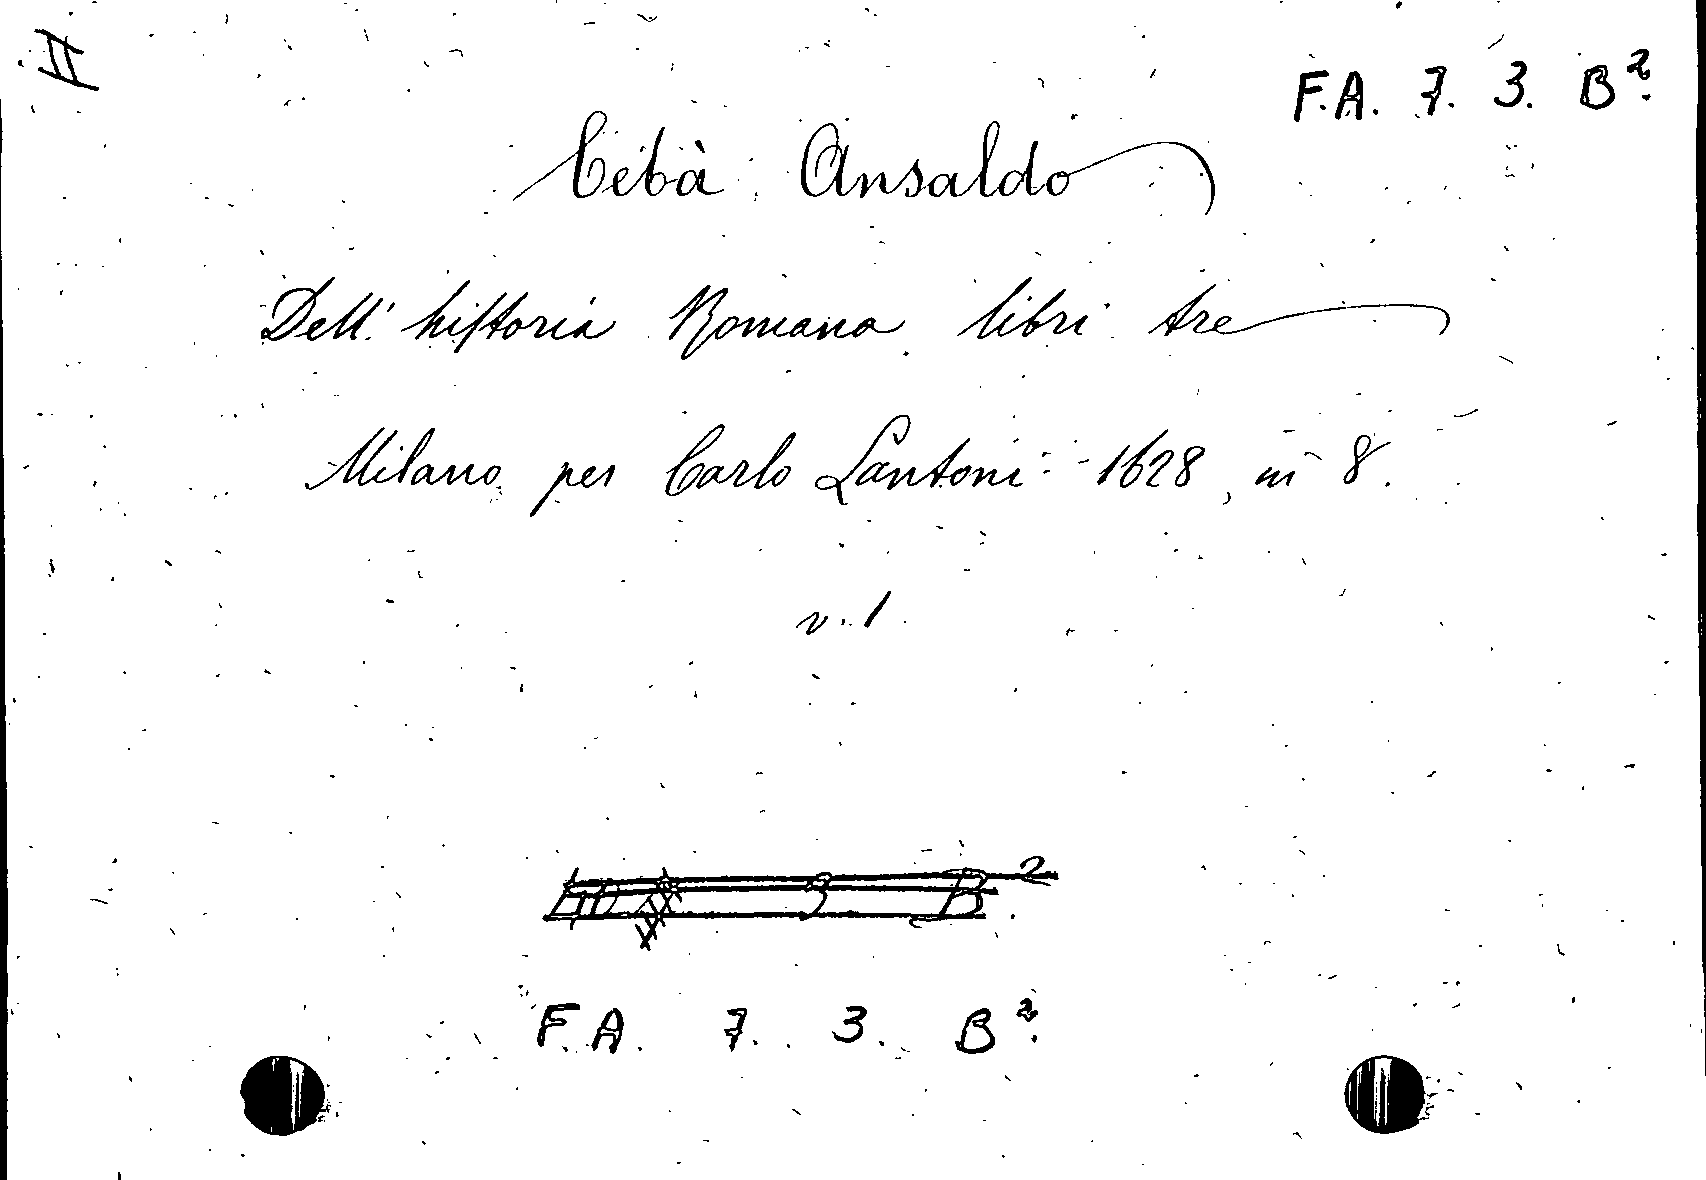 F.A. 7. 3. B².
Cebà Ansaldo
Dell' historia Romana libri tre
Milano per Carlo Lantoni 1628, in 8.
v. 1
3 B 2
F.A. 7. 3. B².